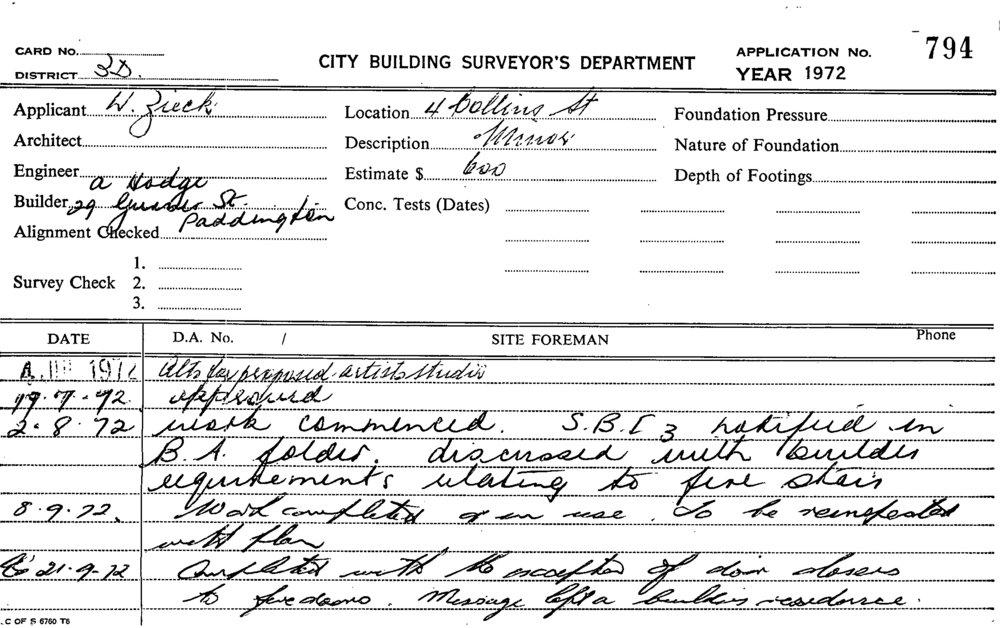 CARD No.
DISTRICT 3D.
CITY BUILDING SURVEYOR'S DEPARTMENT
APPLICATION No. 794
YEAR 1972
Applicant W. Zieck
Architect
Engineer
A Hodge
Builder 29 St.
Paddington
Alignment Checked
Survey Check 1.
2.
3.
Location 4 Collins St
Description Minor
Estimate $ 600
Conc. Tests (Dates)
Foundation Pressure
Nature of Foundation
Depth of Footings
DATE D.A. No. / SITE FOREMAN Phone
1972 Alts for proposed artists studio
19.7.72 approved
2.8.72 work commenced. S.B.I 3 notified in
B.A. folder. discussed with builder
requirements relating to fire stair
8.9.72. Work completed & in use. To be reinspected
with plan
21.9.72 Completed with the exception of door closers
to fire doors. Message left a builders residence.
C OF S 6760 T6